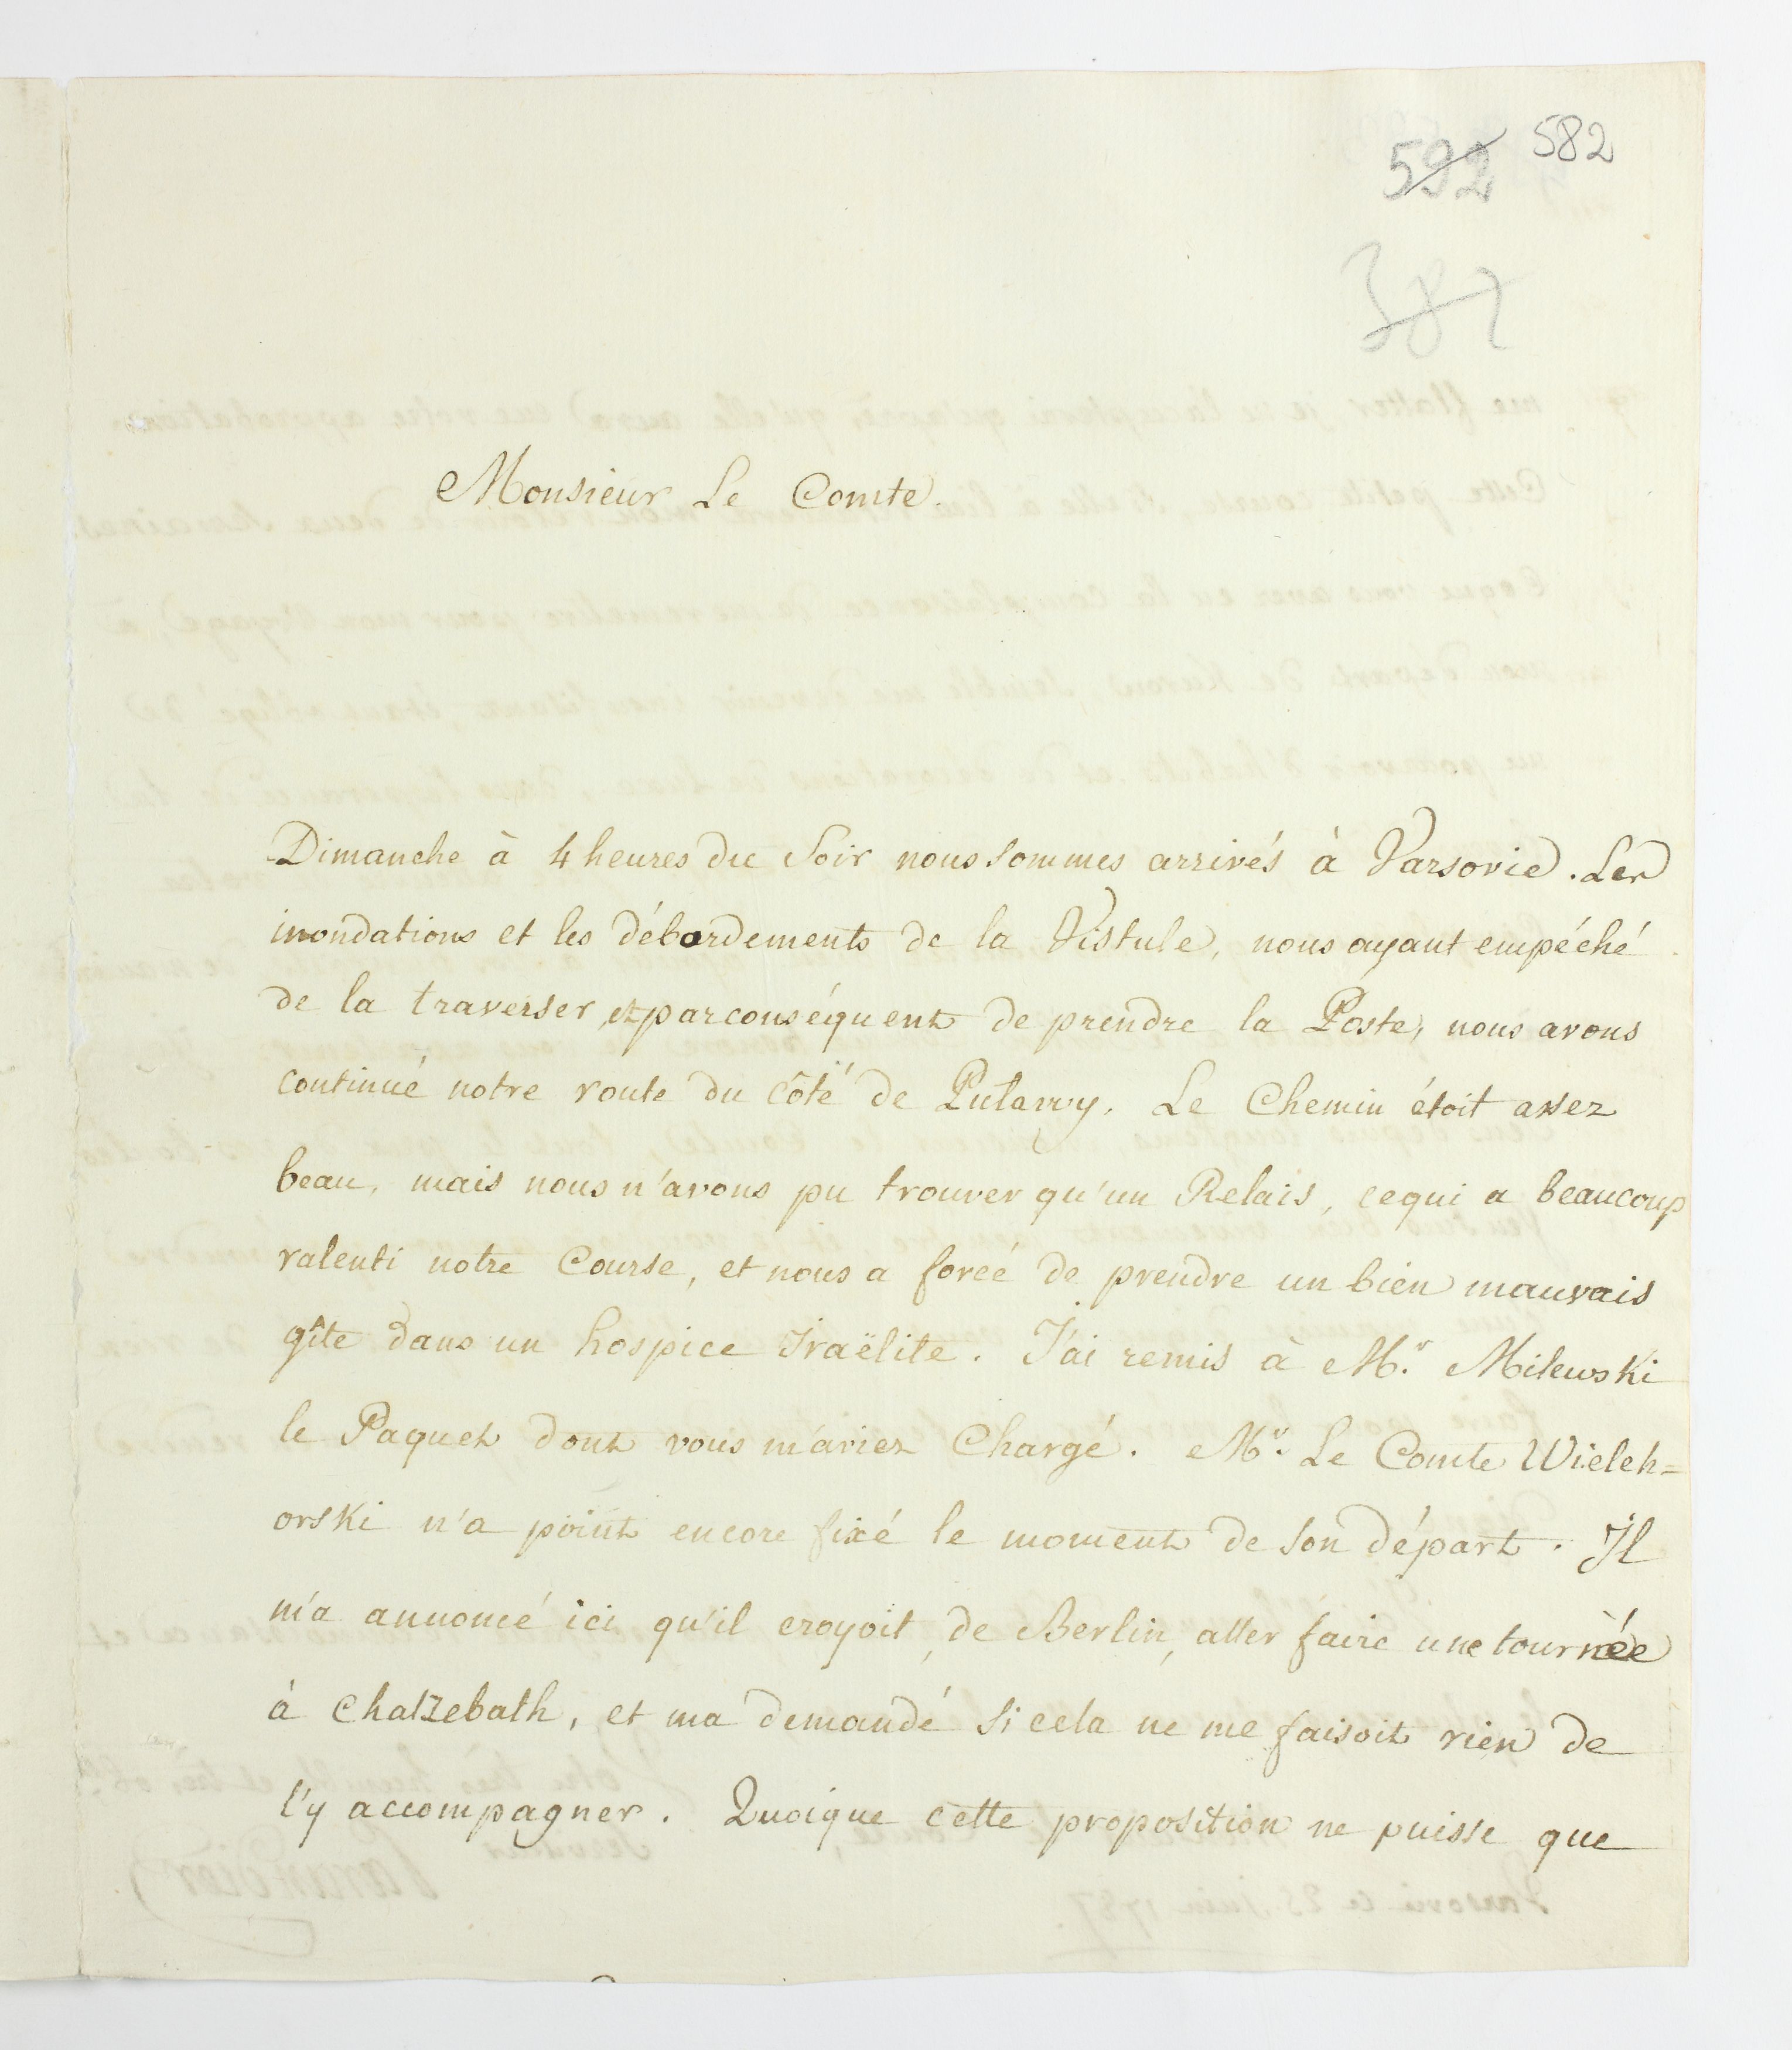 592 582
387
Monsieur Le Comte.
Dimanche à 4 heures du Soir nous sommes arrivés à Varsovie. Les
inondations et les débordements de la Vistule, nous ayant empéché
de la traverser, et parconséquent de prendre la Poste, nous avons
continué notre route du côté de Pulawy. Le Chemin étoit assez
beau, mais nous n'avons pu trouver qu'un Relais, cequi a beaucoup
ralenti notre Course, et nous a forcé de prendre un bien mauvais
gîte dans un hospice Israëlite. J'ai remis à Mr. Milewski
le Paquet dont vous m'aviez Chargé. Mr. Le Comte Wieleh=
orski n'a point encore fixé le moment de son départ. Il
m'a annoncé ici qu'il croyoit, de Berlin, aller faire une tournée
à Chatzebath, et m'a demandé si cela ne me faisoit rien de
l'y accompagner. Quoique cette proposition ne puisse que